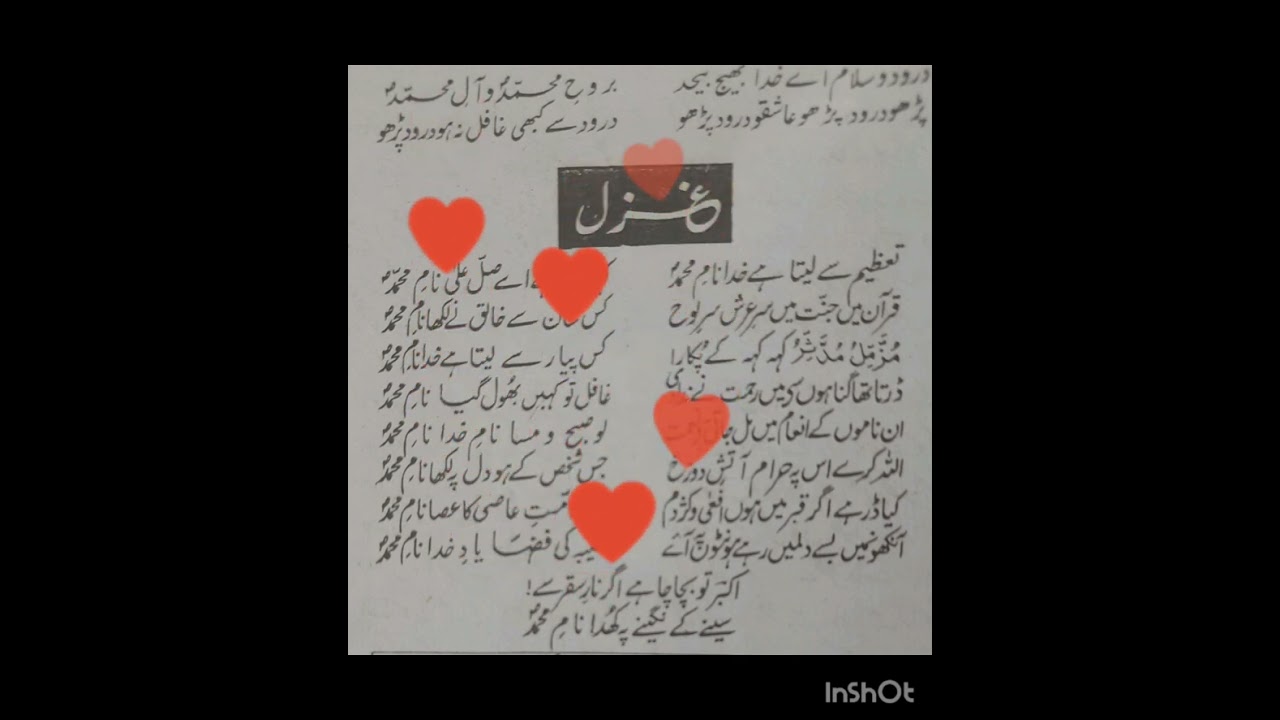 درود و سلام اے خدا بھیج بیحد بروحِ محمّدؐ و آلِ محمّدؐ
پڑھو درود پڑھو عاشقو درود پڑھو درود سے کبھی غافل نہ ہو درود پڑھو
غزل
تعظیم سے لیتا ہے خدا نامِ محمدؐ اے صلِّ علیٰ نامِ محمدؐ
قرآن میں جنّت میں سرِ عرش سرِ لوح کس سے خالق نے لکھا نامِ محمدؐ
مُزَّمِّلُ مُدَّثِّرُ کہہ کہہ کے پُکارا کس پیار سے لیتا ہے خدا نامِ محمدؐ
ڈرتا تھا گناہوں سے میں رحمت نے ندا دی غافل تو کہیں بھُول گیا نامِ محمدؐ
ان ناموں کے انعام میں مل جاتی لو صبح و مسا نامِ خدا نامِ محمدؐ
اللہ کرے اس پہ حرام آتشِ دوزخ جس شخص کے ہو دل پہ لکھا نامِ محمدؐ
کیا ڈر ہے اگر قبر میں ہوں افعٰی و کژدم عاصی کا عصا نامِ محمدؐ
آنکھو نمیں بسے دلمیں رہے ہونٹوں پہ آئے کی فضا یادِ خدا نامِ محمدؐ
اکبرؔ تو بچا چاہے اگر نارِ سقر سے!
سینے کے نگینے پہ کھُدا نامِ محمدؐ
InShOt